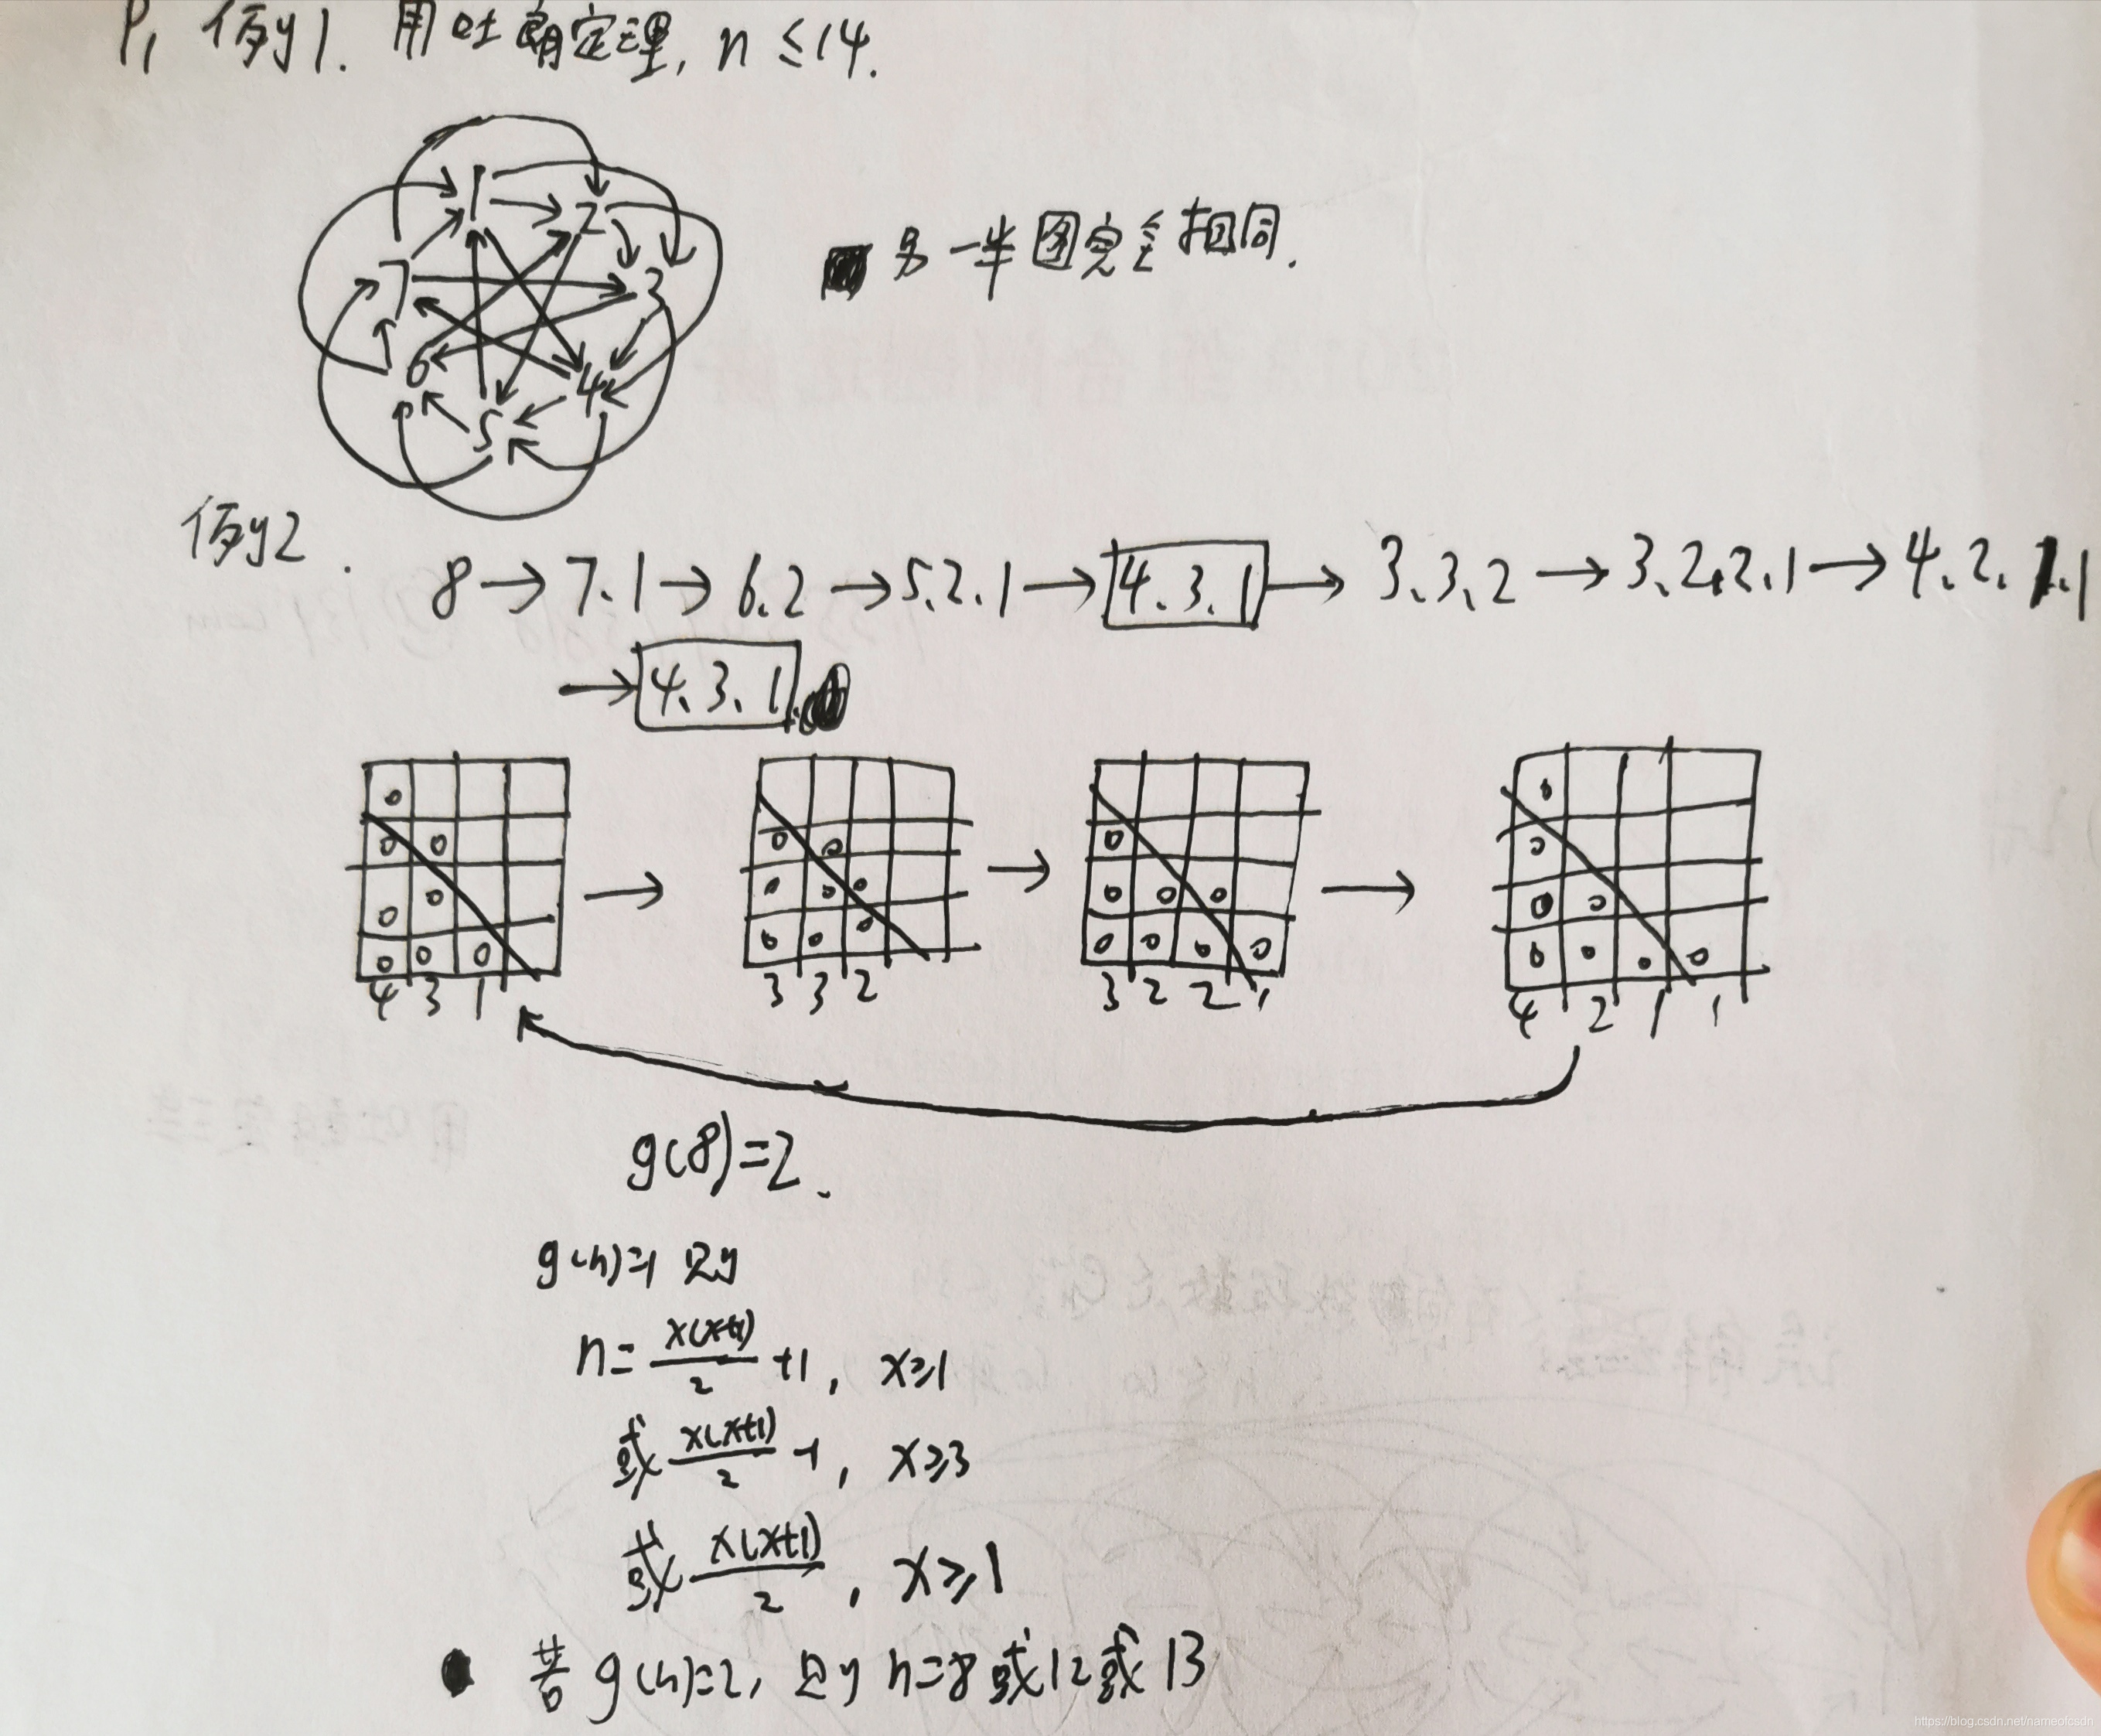 P1 例1. 用吐朗定理, n ≤ 14.
1 2 3 4 5 6 7
另一半图完全相同.
例2.
8 → 7.1 → 6.2 → 5.2.1 → 4.3.1 → 3.3.2 → 3.2.2.1 → 4.2.1.1
→ 4.3.1
4 3 1
3 3 2
3 2 2 1
4 2 1 1
g(8)=2.
g(n)=1 则
n = x(x+1)/2 +1, x≥1
或 x(x+1)/2 -1, x≥3
或 x(x+1)/2, x≥1
若 g(n)=2, 则 n=8或12或13
https://blog.csdn.net/nameofcsdn